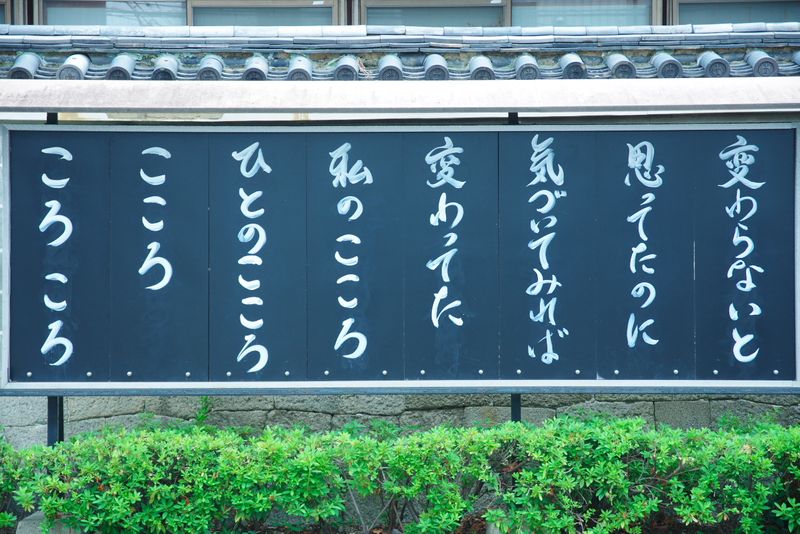 変わらないと
思ってたのに
気づいてみれば
変わってた
私のこころ
ひとのこころ
こころ
ころころ